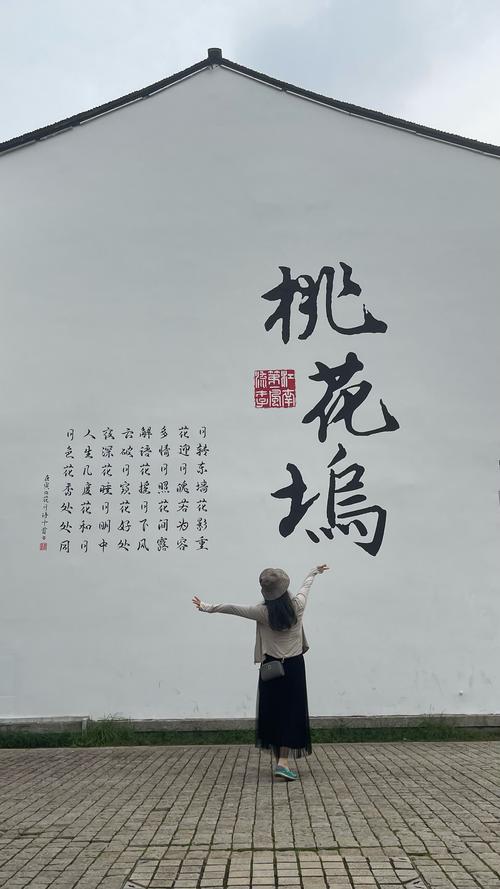 桃花塢
江南第一風流才子
月转东墙花影重
花迎月魄若为容
多情月照花间露
解语花摇月下风
云破月窥花好处
夜深花睡月明中
人生几度花和月
月色花香处处同